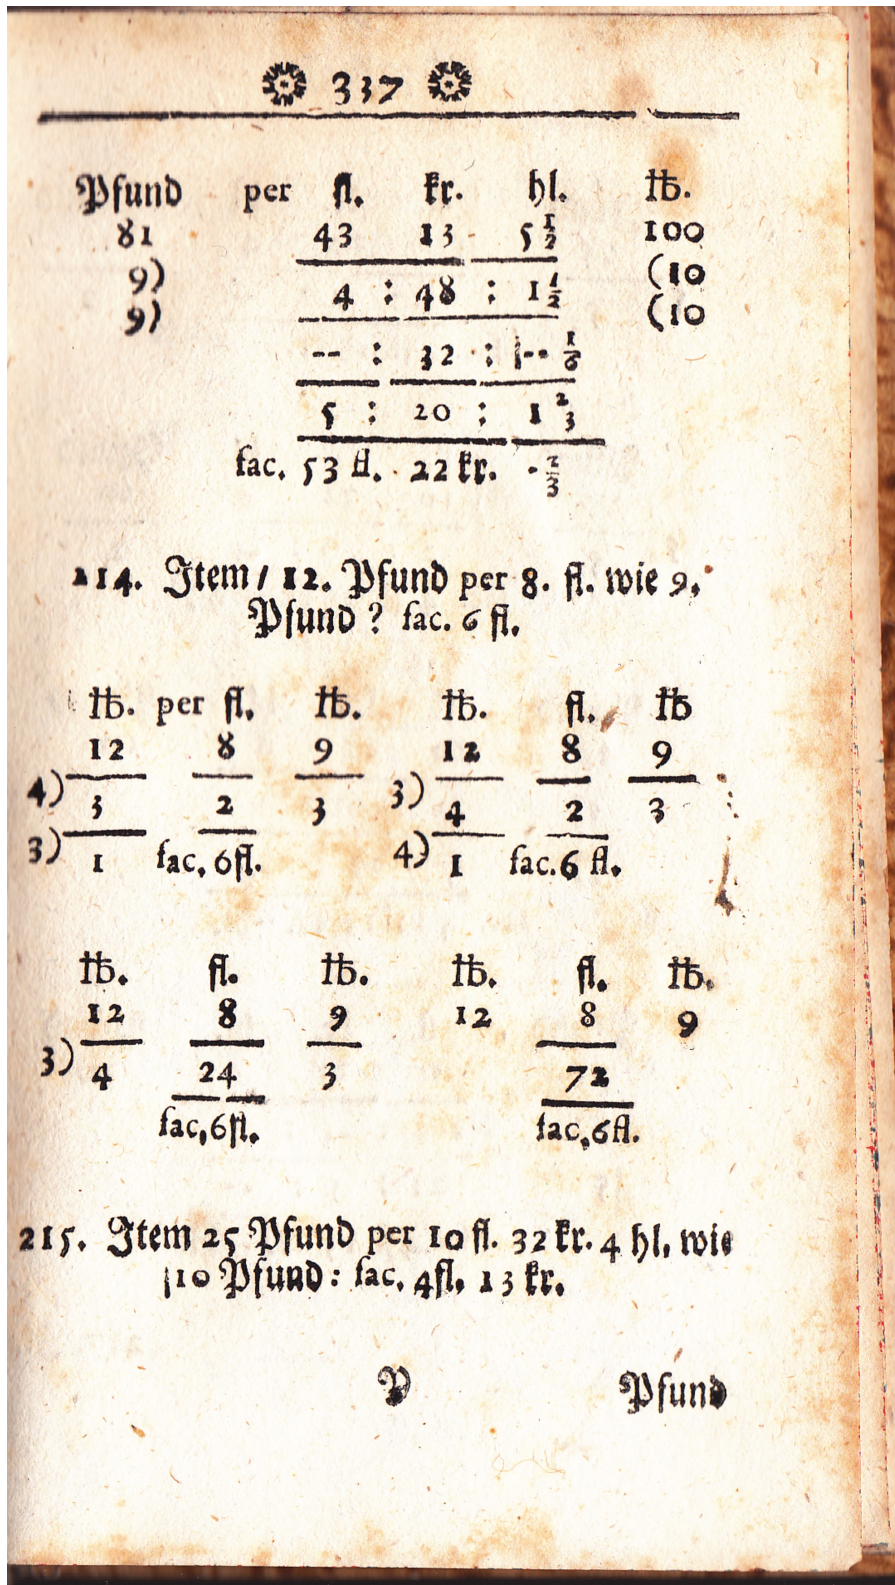 337
Pfund per fl. kr. hl. ℔.
81 43 13 5 1/2 100
9) 4 : 48 : 1 1/2 (10
9) (10
-- : 32 : -- 1/6
5 : 20 : 1 2/3
fac. 53 fl. 22 kr. - 2/3
214. Item / 12. Pfund per 8. fl. wie 9.
Pfund ? fac. 6 fl.
℔. per fl. ℔. ℔. fl. ℔
12 8 9 12 8 9
4) 3 2 3 3) 4 2 3
3) 1 fac. 6fl. 4) 1 fac. 6 fl.
℔. fl. ℔. ℔. fl. ℔.
12 8 9 12 8 9
3) 4 24 3 72
fac. 6fl. fac. 6fl.
215. Item 25 Pfund per 10 fl. 32 kr. 4 hl. wie
10 Pfund : fac. 4fl. 13 kr.
Y Pfund